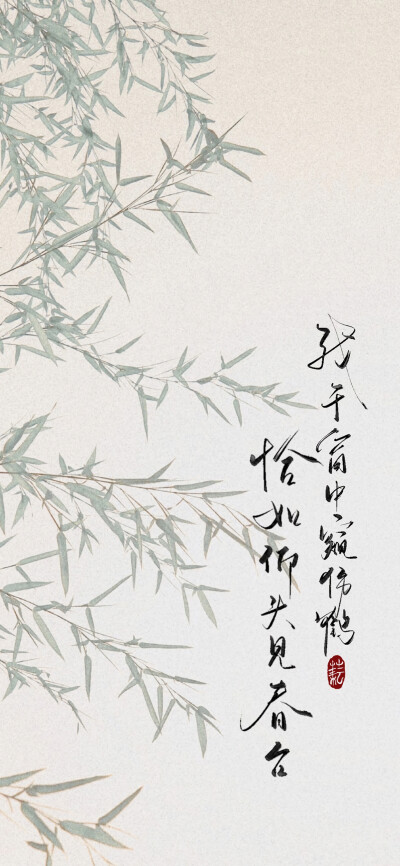 我于窗中窥伤鹤
恰如仰头见春台
耘